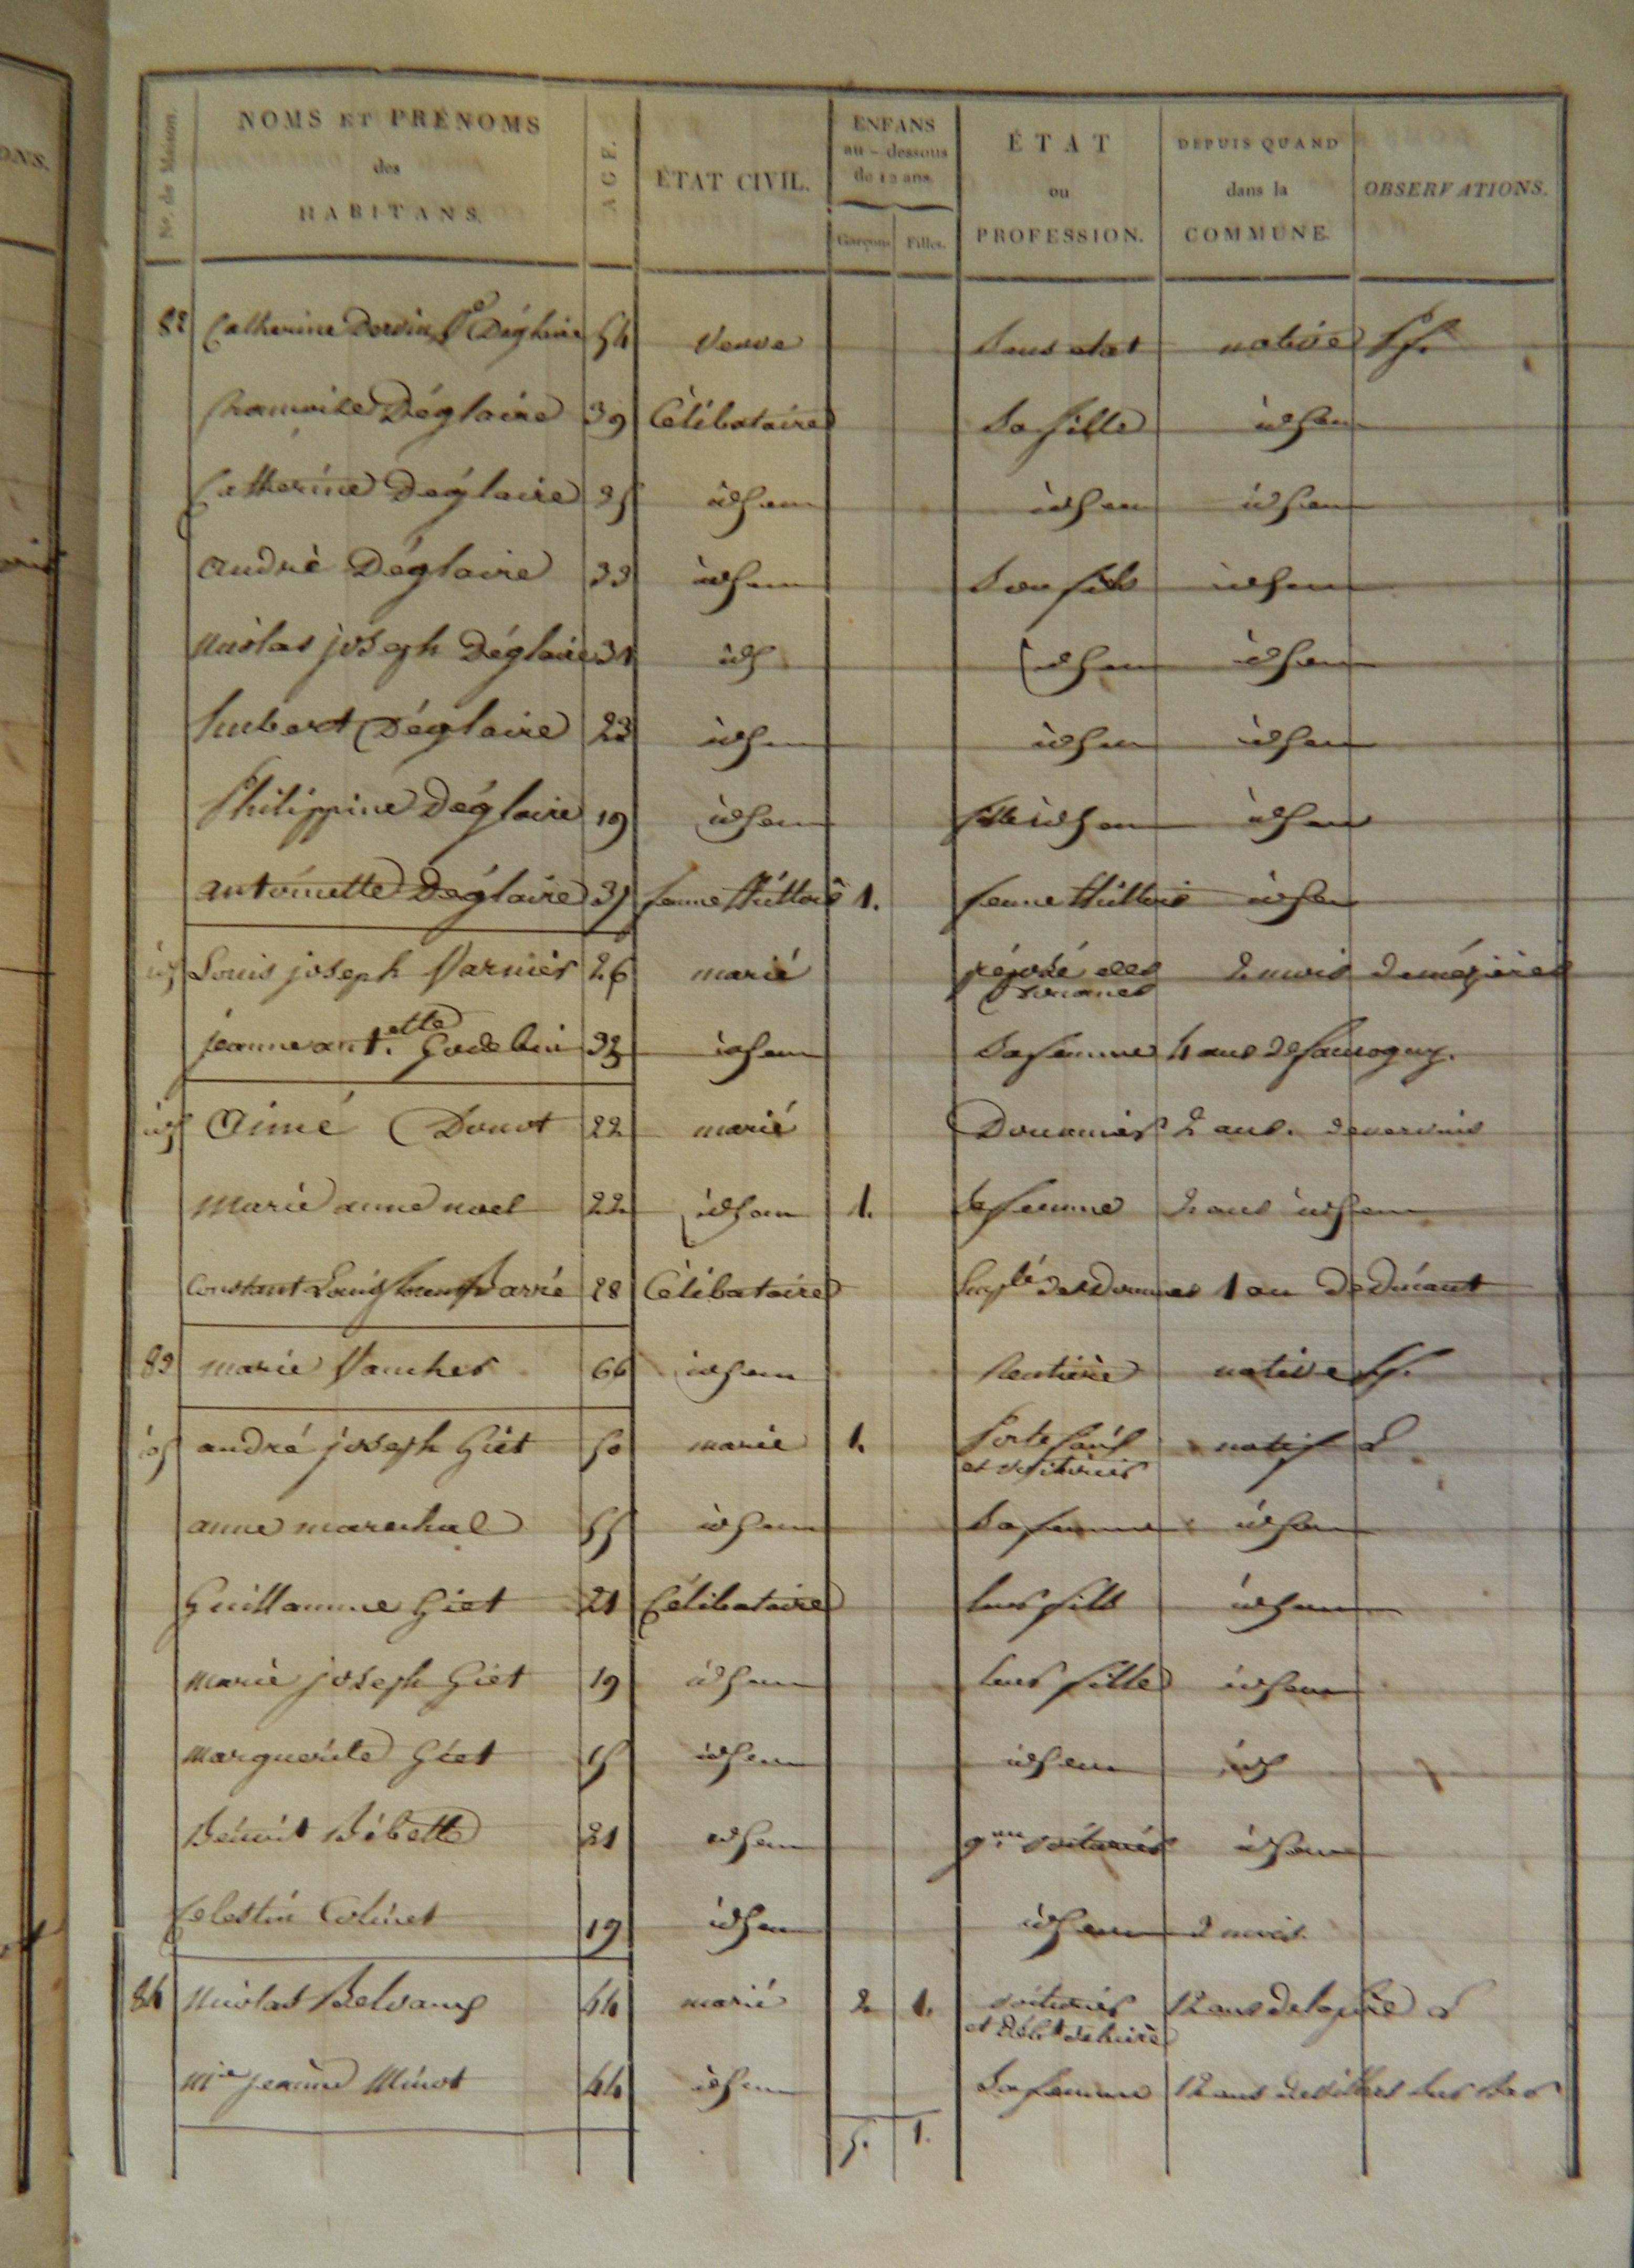 ONS.
No. de Maison.
NOMS ET PRÉNOMS
des
HABITANS.
AGE.
ÉTAT CIVIL.
ENFANS
au-dessous
de 12 ans.
Garçons.
Filles.
ÉTAT
ou
PROFESSION.
DEPUIS QUAND
dans la
COMMUNE.
OBSERVATIONS.
82 Catherine Ve Déglaire 54 Veuve Sans etat native
Déglaire 39 Célibataire Sa fille idem
Catherine Déglaire 35 idem idem idem
André Déglaire 33 idem Son fils idem
Nicolas joseph Déglaire 31 id idem idem
hubert Déglaire 23 idem idem idem
Philippine Déglaire 19 idem fille idem idem
antoinette Déglaire 37 femme 1. femme idem
id Louis joseph Varnier 26 marié préposé des 2 mois de mézières
Douanes
jeanne ant.ette 33 idem Sa femme 4 ans
id Aimé Donot 22 marié Douanier 2 ans. de vervins
Marie anne noel 22 idem 1. Sa femme 2 ans idem
Constant Louis 28 Célibataire des Douanes 1 an de dinant
83 marie Vaucher 66 idem Rentière native
id andré joseph Giet 50 marié 1. Porte faix natif
et voiturier
anne marechal 55 idem Sa femme idem
Guillaume Giet 21 Célibataire leur fils idem
Marie joseph Giet 19 idem leur fille idem
Marguerite Giet 15 idem idem id
Benoit Bibette 21 idem voiturier idem
Celestin Colinet 19 idem idem 2 mois.
84 Nicolas 44 marié 2 1. voiturier 12 ans
et débt de bière
Mie jeanne Minot 44 idem Sa femme 12 ans
5. 1.